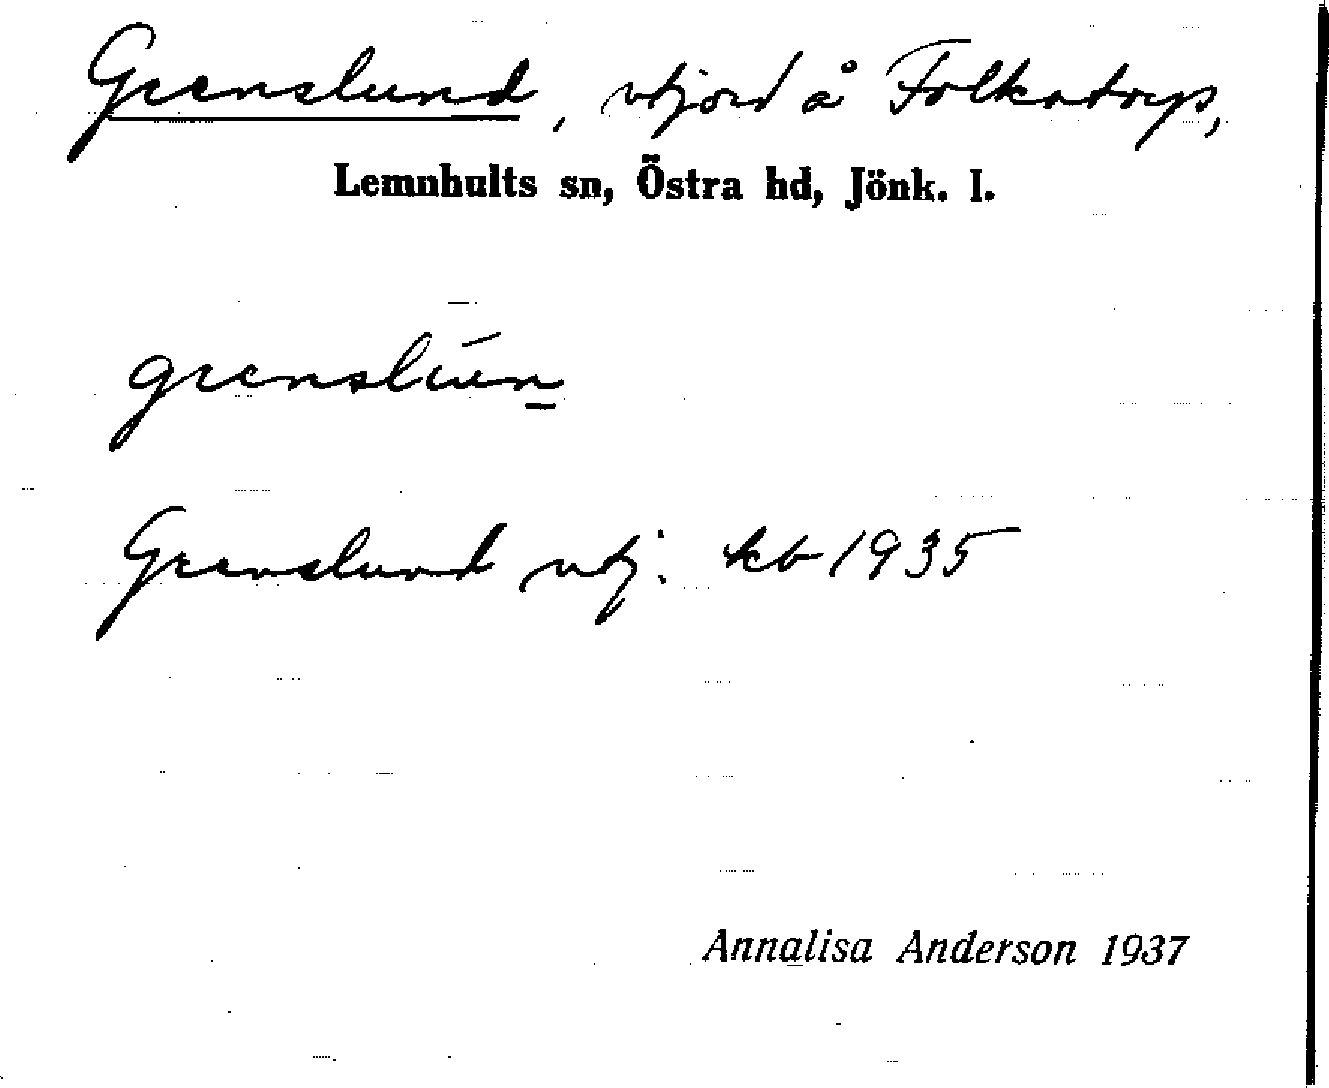 Grenslund, utjord å Folkatorp,
Lemnhults sn, Östra hd, Jönk. l.
grenslún
Grenslund utj. kb 1935
Annalisa Anderson 1937